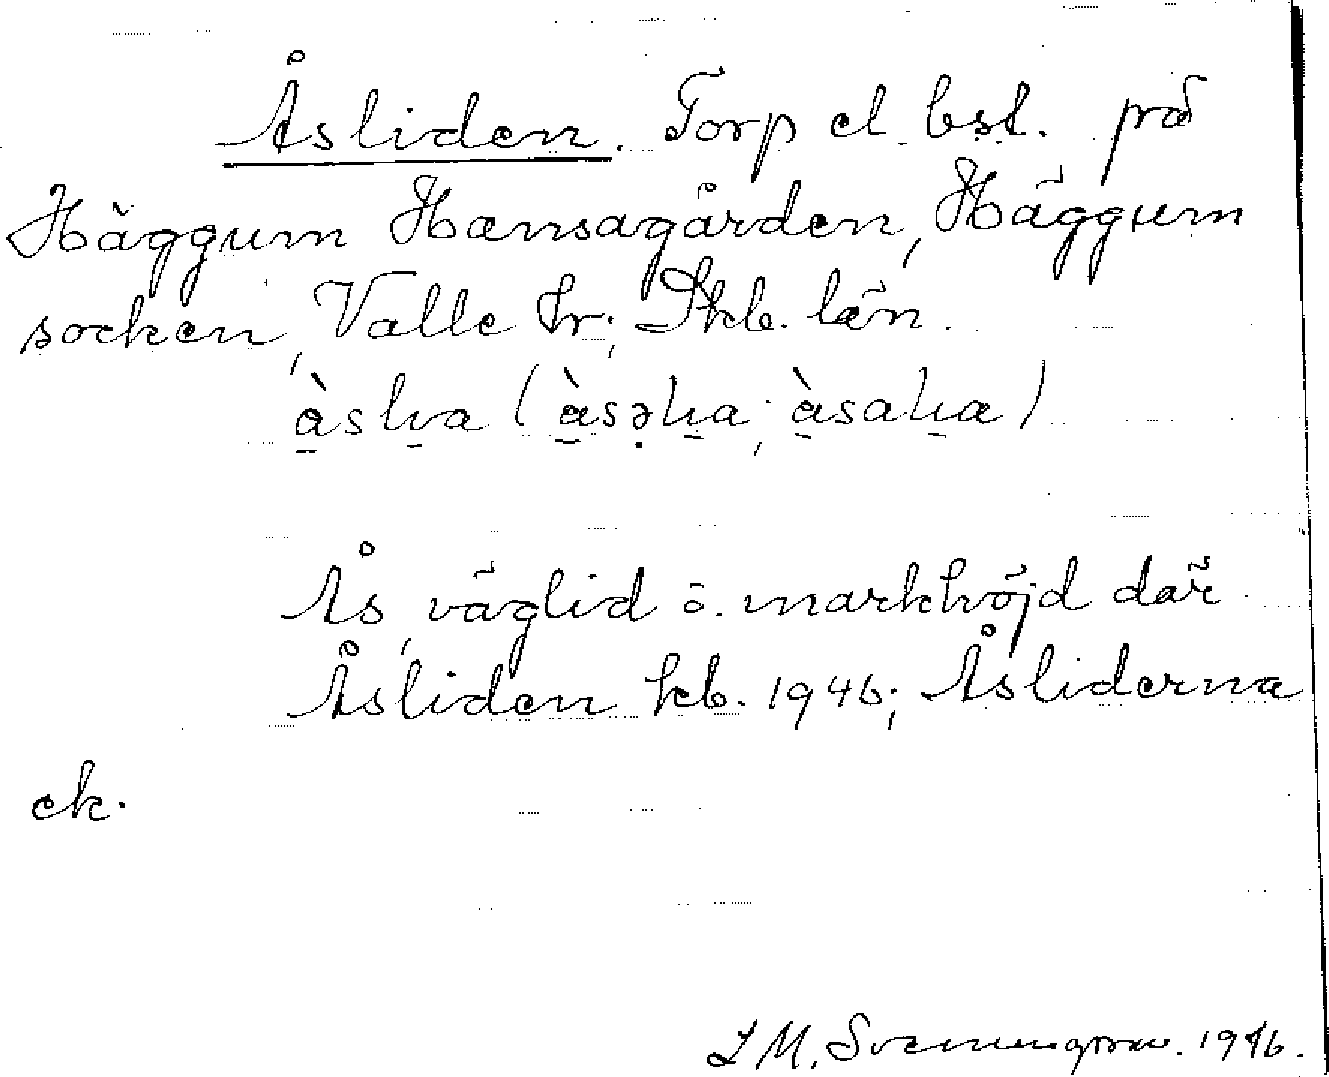 Åsliden. Torp el. bst. på
Häggum Hansagården, Häggum
socken, Valle hr; Skb. län.
àslia (àsəlia; àsalia)
Ås, väglid o. markhöjd där
Åsliden kb. 1946; Åsliderna
ek.
1946.